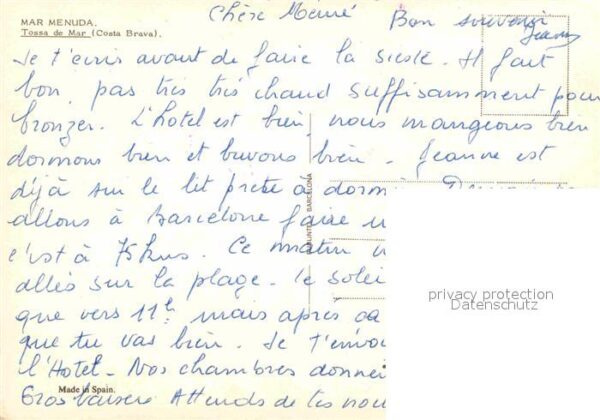 MAR MENUDA.
Tossa de Mar (Costa Brava).
Chère Mémé
Bon souvenir
Jeanne
Je t'écris avant de faire la sieste. Il fait
bon, pas très très chaud suffisamment pour
bronzer. L'hotel est bien, nous mangeons bien
dormons bien et buvons bien. Jeanne est
déjà sur le lit prête à dormir.
allons à Barcelone faire u
c'est à 75 kms. Ce matin n
allés sur la plage. le solei
que vers 11h mais après ca
que tu vas bien. Je t'envo
l'Hotel. Nos chambres donne
Gros baisers Attends de tes nou
Made in Spain.
BARCELONA
privacy protection
Datenschutz